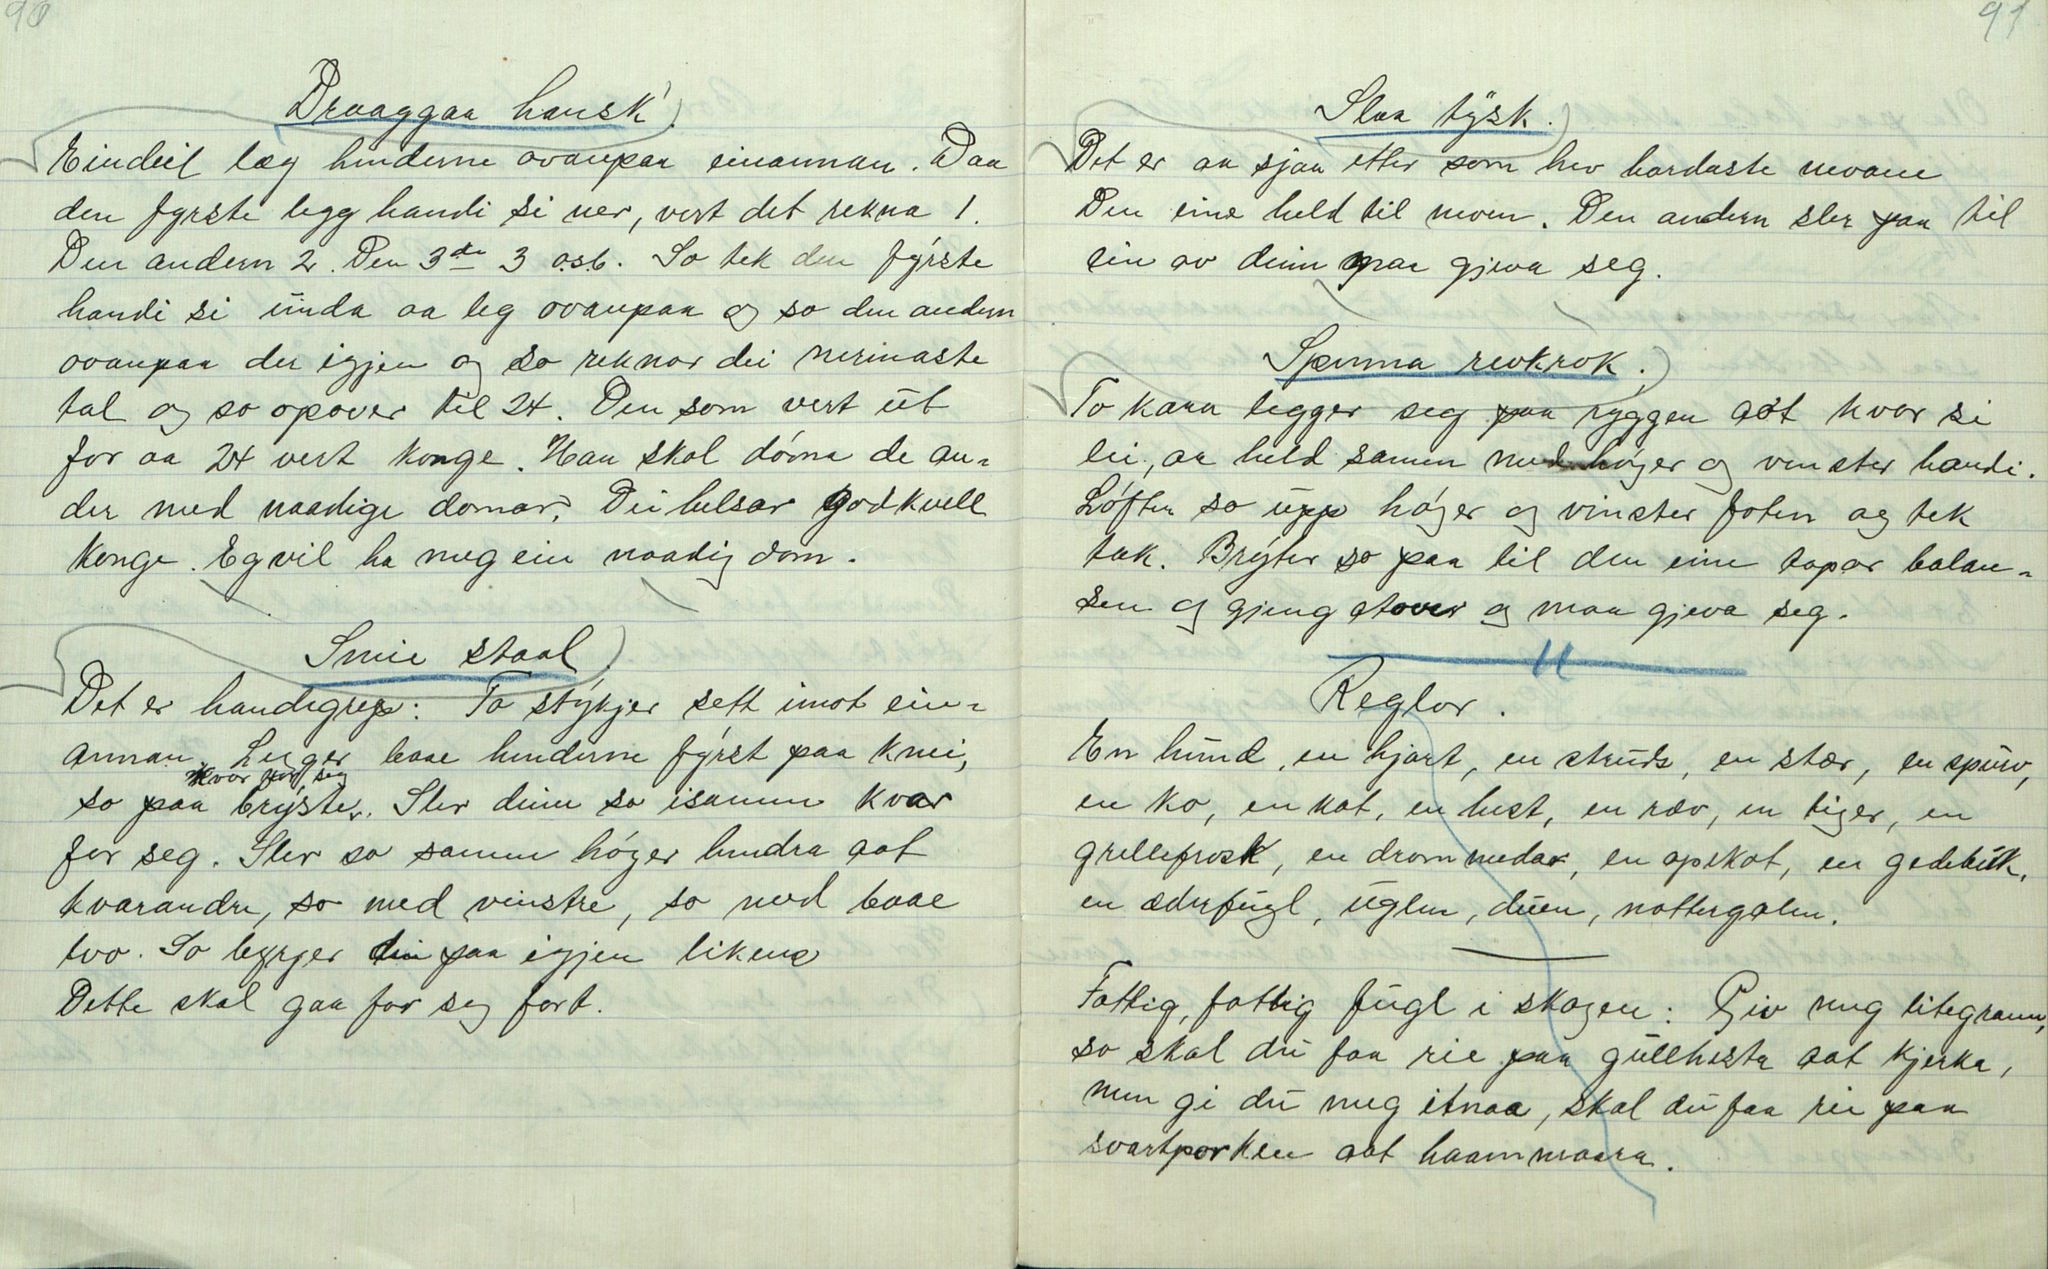 90
Draaggaa hansk.
Eindeil læg henderne ovanpaa einannan. Daa
den fyrste legg handi si ner, vert det rekna 1.
Den andern 2. Den 3de 3 o.s.b. So tek den fyrste
handi si unda aa leg ovanpaa og so den andern
ovanpaa der igjen og so reknar dei nerinaste
tal og so opover til 24. Den som vert ut
for aa 24 vert konge. Han skal döma de an-
der med naadige domar. Dei helsar godkvell
konge. Eg vil ha meg ein naadig dom.
Smie staal
Det er handegrep: To stykjer sett imot ein-
annan. Legger baae henderne fyrst paa knei,
hvar for seg
so paa bryste. Sler deim so isamen kvar
for seg. Sler so samen höger hendra aat
kvarandre, so med vinstre, so med baae
tvo. So byrjer dei paa igjen likens
Dette skal gaa for seg fort.
91
Slaa tysk.
Det er aa sjaa etter som hev hardaste nevane
Den eine held til neven. Den andern sler paa til
ein av deim maa gjeva seg.
Spenna revkrok.
To kara legger seg paa ryggen aat kvar si
lei, aa held samen med höger og venster handi.
Löfter so upp höger og vinster foten og tek
tak. Bryter so paa til den eine tapar balan-
sen og gjeng stover og maa gjeva seg.
Reglor.
En hund, en hjort, en struds, en stær, en spurv,
en ko, en kat, en hest, en ræv, en tiger, en
grellefrosk, en drommedar, en apekat, en gedebuk,
en æderfugl, uglen, duen, nattergalen.
Fattig, fattig fugl i skogen: Giv meg litegrann,
so skal du faa rie paa gullhesta aat kjerka,
men gi du meg itnaa, skal du faa rie paa
svartporken aat haammaara.